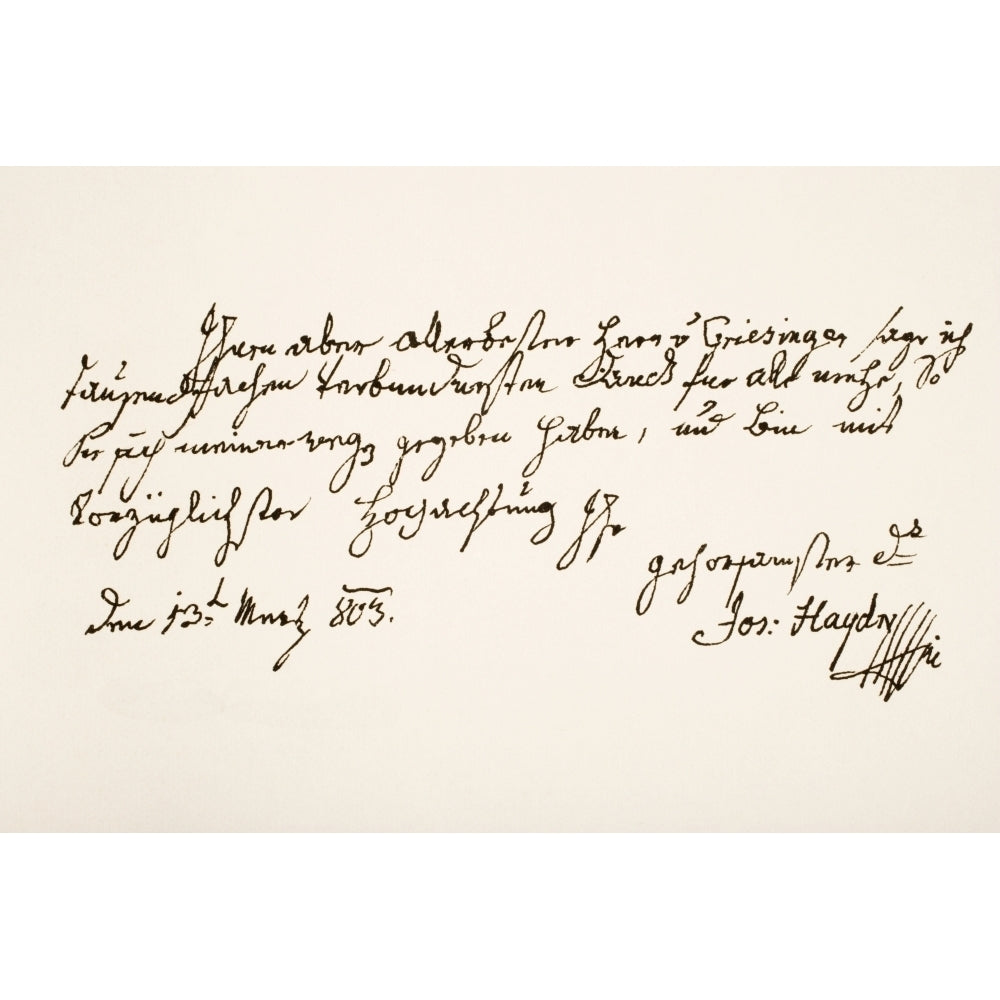 Ihnen aber allerbester Herr v Griesinger sage ich
tausendfachen verbundensten Danck für alle mühe, So
Sie sich meinerwegen gegeben haben, und bin mit
vorzüglichster Hochachtung Ihr
gehorsamster dr
den 13t Mertz 803.
Jos: Haydn